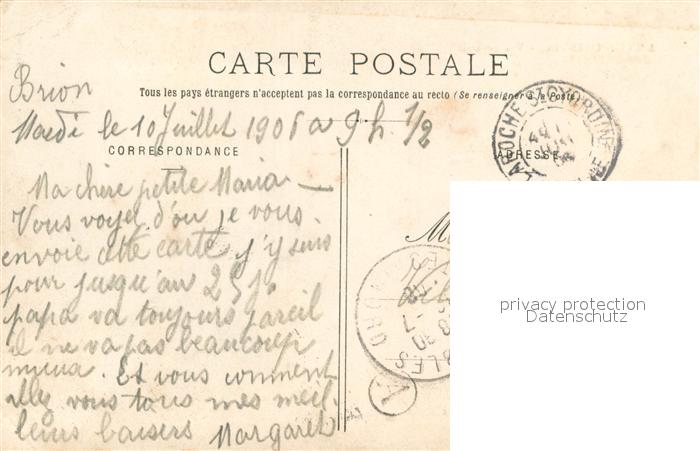 CARTE POSTALE
Tous les pays étrangers n'acceptent pas la correspondance au recto (Se renseigner à la Poste)
Brion
Mardi le 10 Juillet 1906 a 9 h 1/2
CORRESPONDANCE
ADRESSE
LAROCHE ST CYDROINE
Ma chère petite Maria
Vous voyez d'ou je vous
envoie cette carte j'y suis
pour jusqu'au 25
papa va toujours pareil
il ne va pas beaucoup
mieux. Et vous comment
allez vous tous mes meil
leurs baisers Margaret
M
privacy protection
Datenschutz